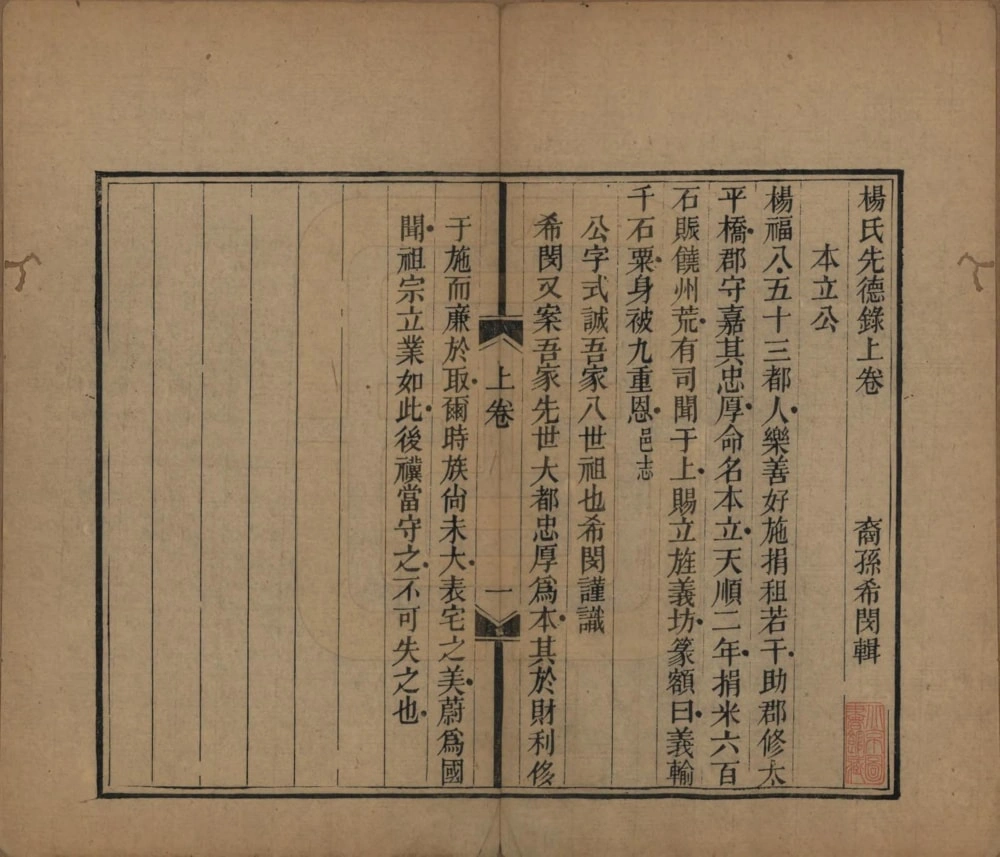 楊氏先德錄上卷　裔孫希閔輯
本立公
楊福八五十三都人樂善好施捐租若干助郡修太
平橋郡守嘉其忠厚命名本立天順二年捐米六百
石賑饒州荒有司聞于上賜立旌義坊篆額曰義輸
千石粟身被九重恩邑志
公字式誠吾家八世祖也希閔謹識
希閔又案吾家先世大都忠厚爲本其於財利侈
上卷
一
于施而廉於取爾時族尙未大表宅之美蔚爲國
聞祖宗立業如此後禩當守之不可失之也